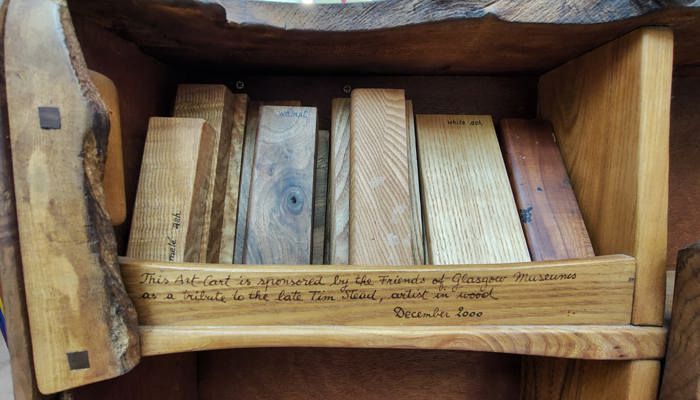 walnut
white ash
This Art Cart is sponsored by the Friends of Glasgow Museums
as a tribute to the late Tim Stead, artist in wood
December 2000